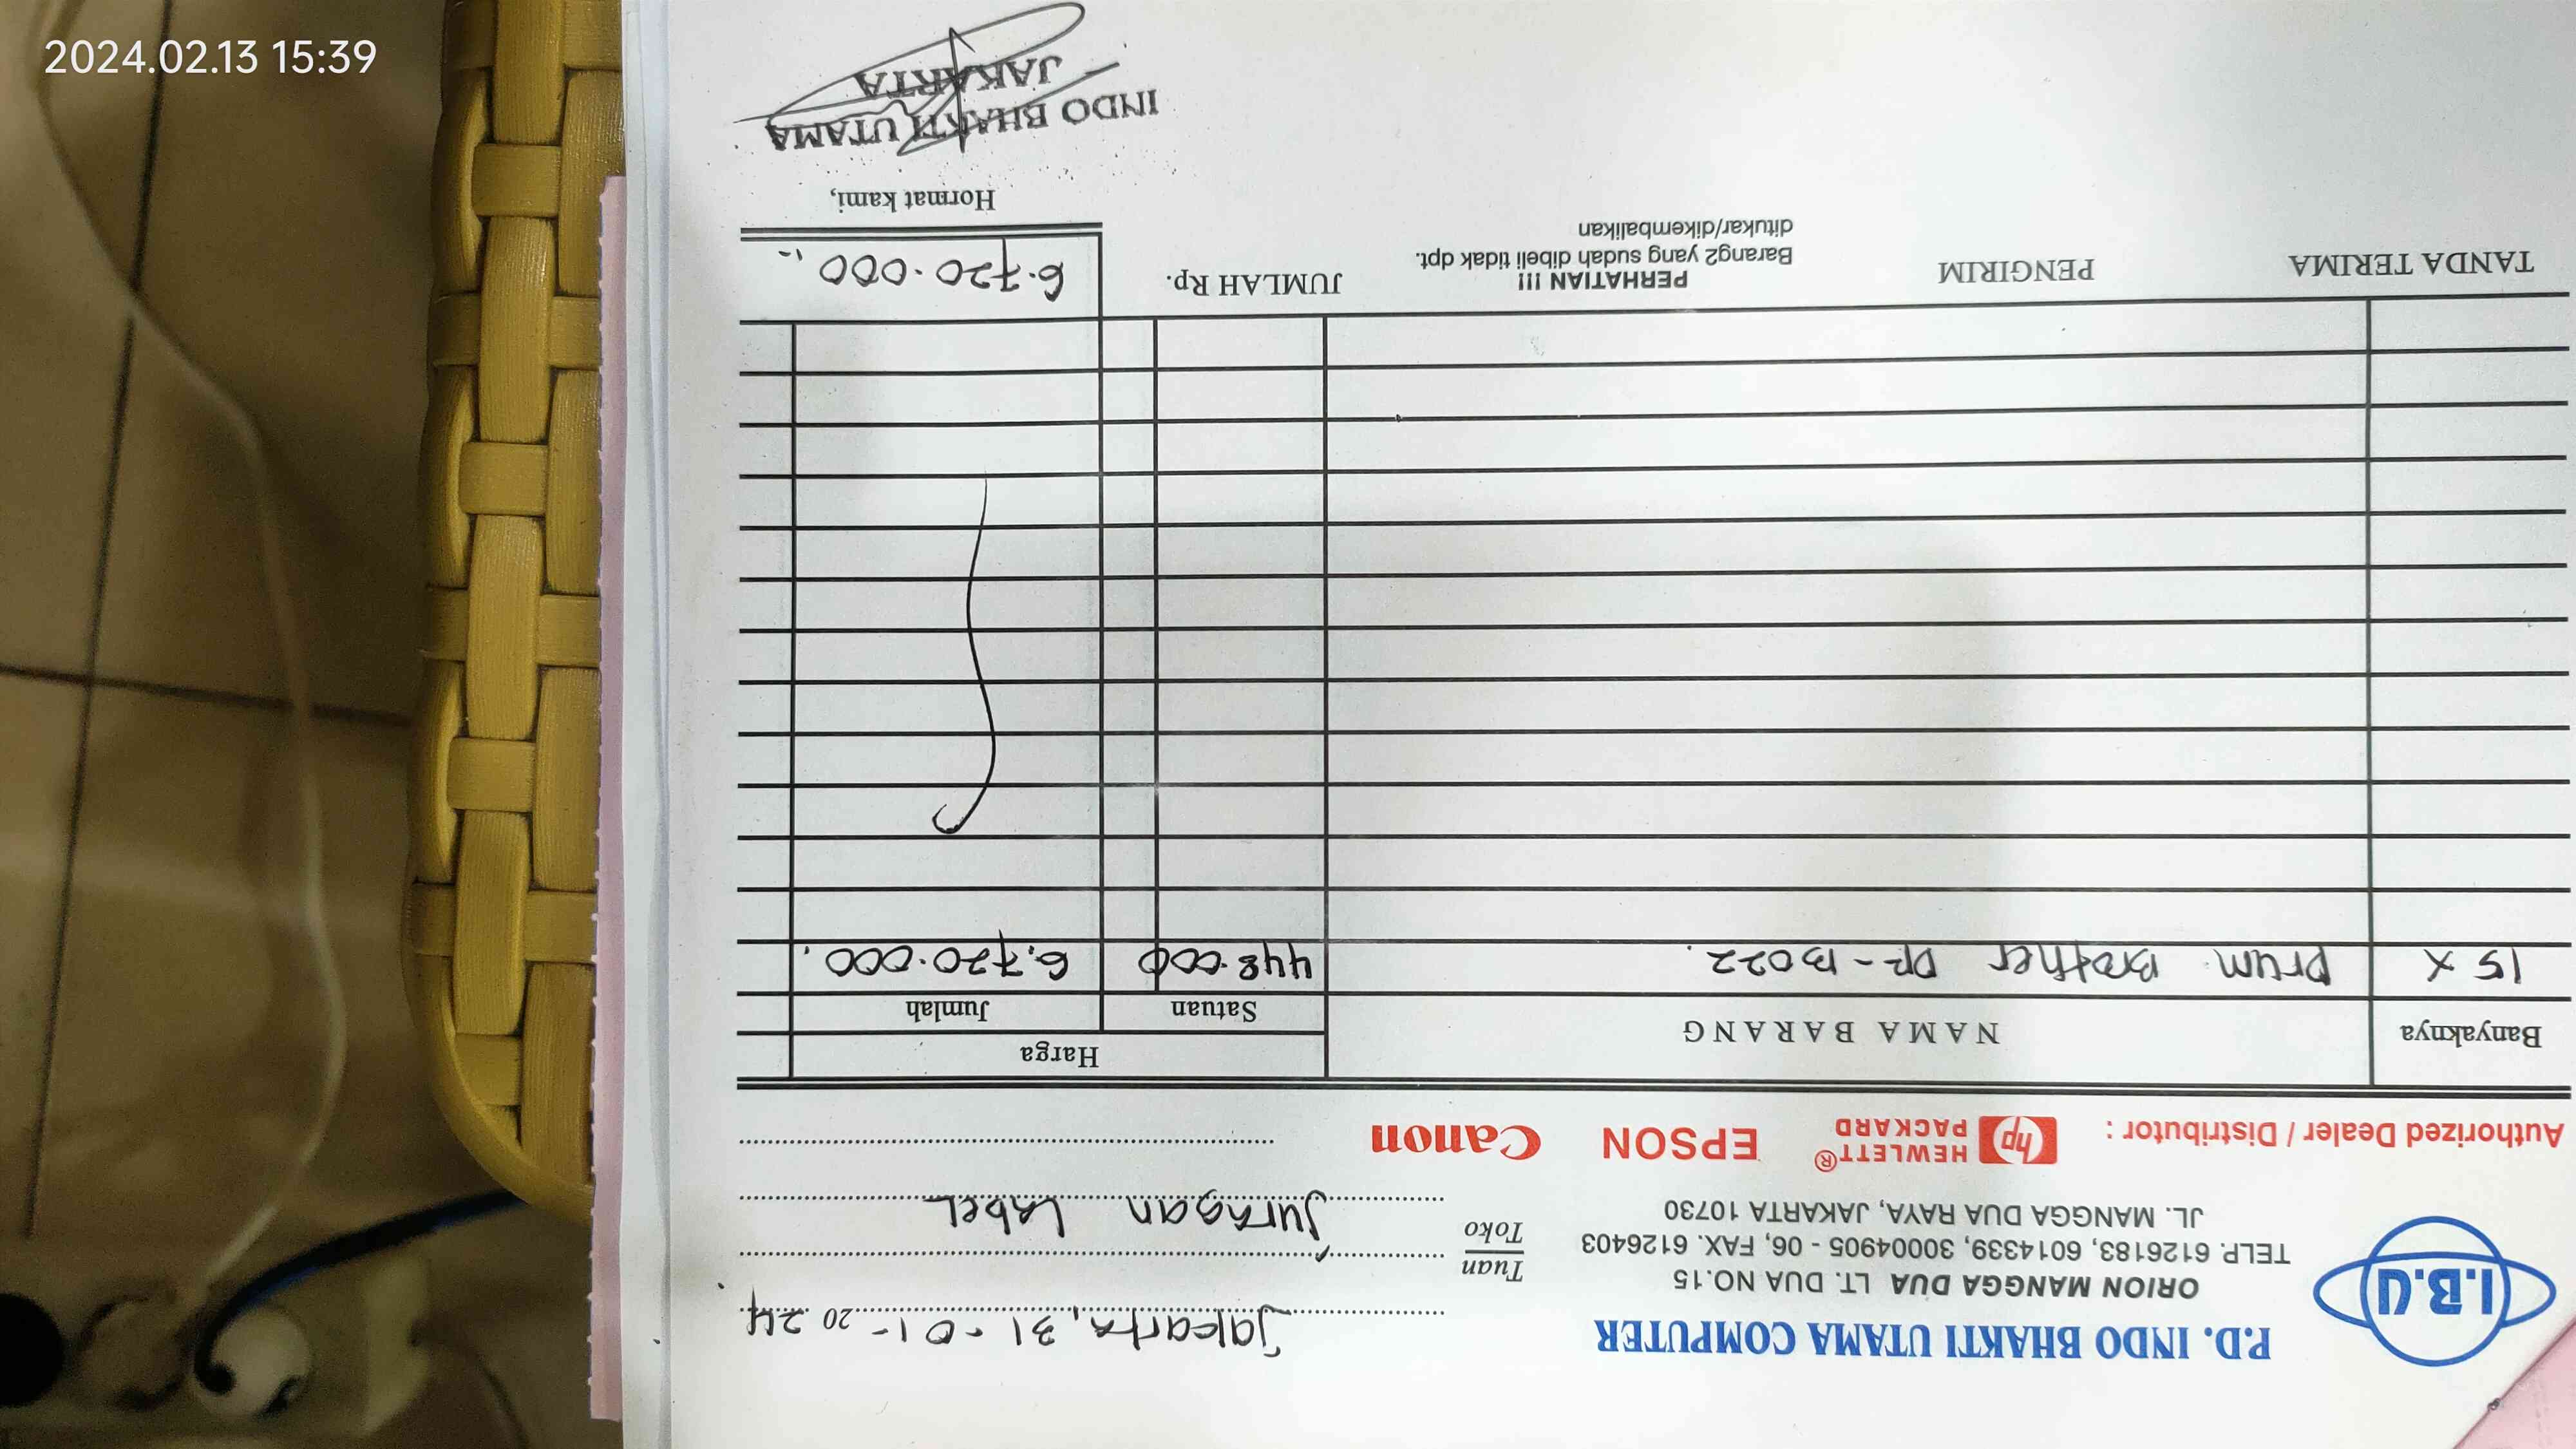 2024.02.13 15:39
I.B.U
P.D. INDO BHAKTI UTAMA COMPUTER
ORION MANGGA DUA LT. DUA NO.15
TELP. 6126183, 6014339, 30004905 - 06, FAX. 6126403
JL. MANGGA DUA RAYA, JAKARTA 10730
Jakarta, 31-01- 20 24
Tuan
Toko
Juragan Label
Authorized Dealer / Distributor : hp HEWLETT® PACKARD EPSON Canon
Banyaknya NAMA BARANG Harga
Satuan Jumlah
15 X Drum Brother DR-B022. 448.000 6.720.000,
TANDA TERIMA PENGIRIM
PERHATIAN !!!
Barang2 yang sudah dibeli tidak dpt.
ditukar/dikembalikan
JUMLAH Rp. 6.720.000,-
Hormat kami,
INDO BHAKTI UTAMA
JAKARTA